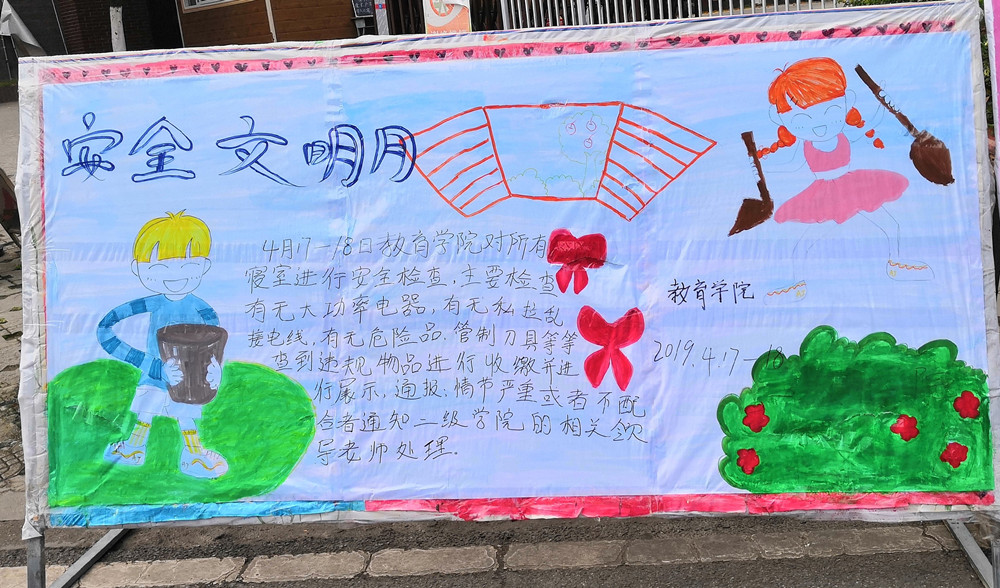 安全文明月
4月17-18日教育学院对所有
寝室进行安全检查，主要检查
有无大功率电器，有无私拉乱
接电线，有无危险品、管制刀具等等
查到违规物品进行收缴并进
行展示，通报；情节严重或者不配
合者通知二级学院的相关领
导老师处理.
教育学院
2019.4.17-18